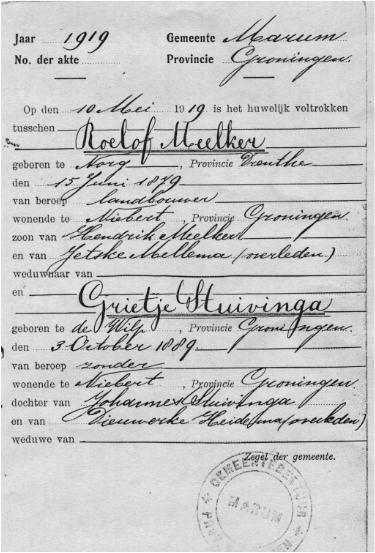 Jaar 1919 Gemeente Marum
No. der akte Provincie Groningen.
Op den 10 Mei 1919 is het huwelijk voltrokken
tusschen
Roelof Meelker
geboren te Norg, Provincie Drenthe
den 15 Juni 1879
van beroep landbouwer
wonende te Niebert, Provincie Groningen
zoon van Hendrik Meelker
en van Jetske Mellema (overleden)
weduwnaar van
en
Grietje Stuivinga
geboren te de Wilp, Provincie Groningen.
den 3 October 1889
van beroep zonder
wonende te Niebert, Provincie Groningen
dochter van Johannes Stuivinga
en van Dieuwerke Heidema (overleden)
weduwe van
Zegel der gemeente.
GEMEENTEBESTUUR
MARUM